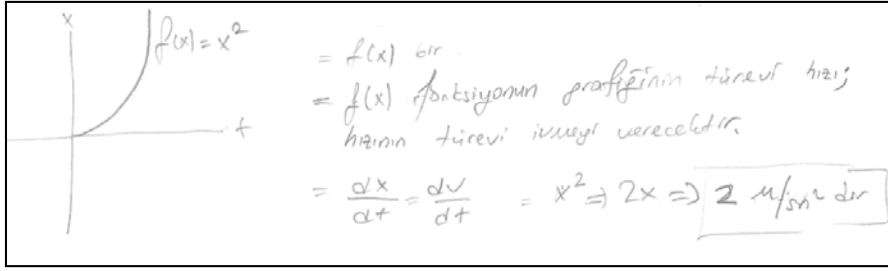 x
f(x) = x²
t
= f(x) bir
= f(x) fonksiyonun grafiğinin türevi hızı;
hızının türevi ivmeyi verecektir.
= dx/dt = dv/dt = x² ⇒ 2x ⇒ 2 m/sn² dir